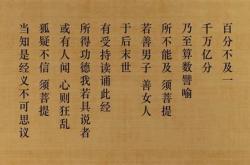 百分不及一
千万亿分
乃至算数譬喻
所不能及 须菩提
若善男子 善女人
于后末世
有受持读诵此经
所得功德我若具说者
或有人闻 心则狂乱
狐疑不信 须菩提
当知是经义不可思议